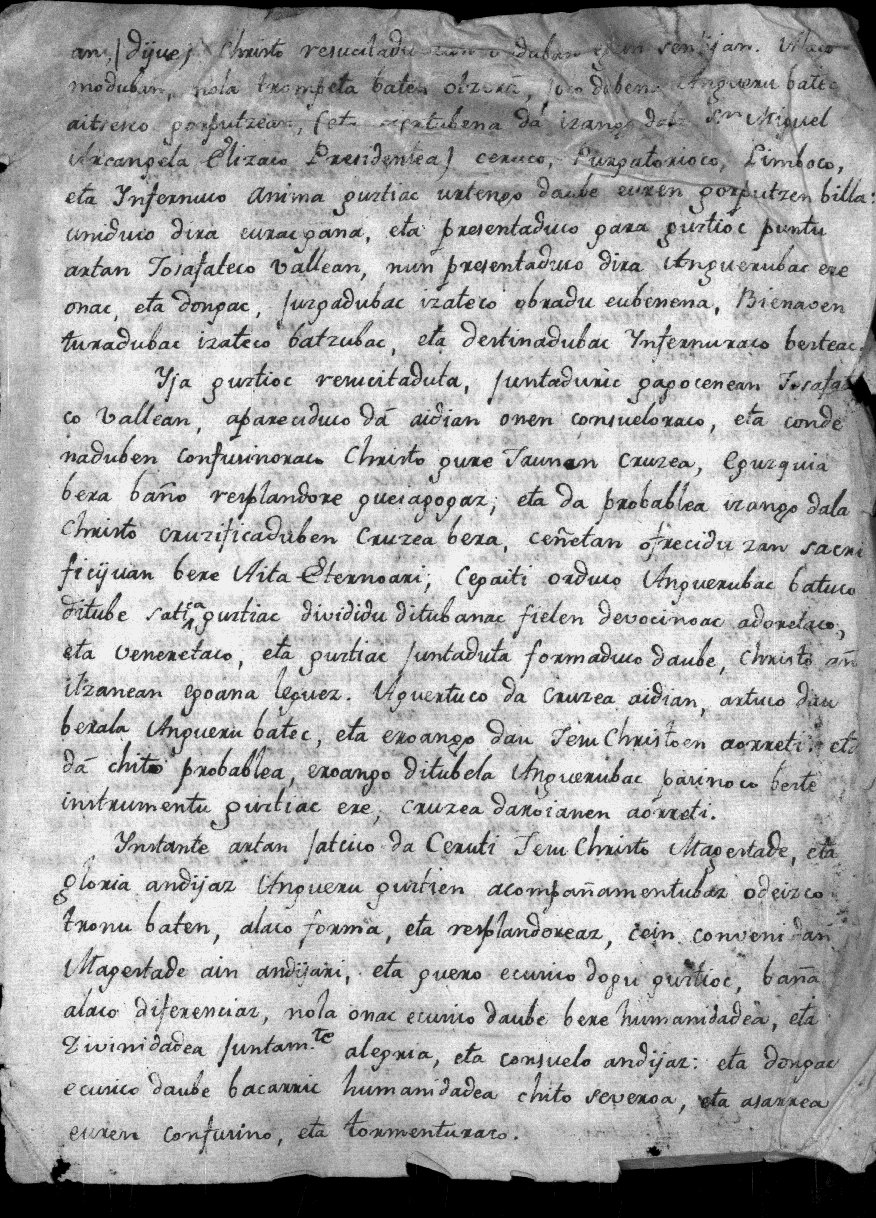 an, dijue, Christo resucitadu zan duban sentijan. Alaco
moduban, nola trompeta baten otzera, Angueru batec
aitseco gorputzean, (eta da izango dala Sn Miguel
Arcangela Elizaco Presidentea) ceruco, Purgatorioco, Limboco,
eta Ynfernuco anima guztiac urtengo daube euren gorputzen billa:
uniduco dira euracgana, eta presentaduco gara guztioc puntu
artan Josafateco vallean, nun presentaduco dira Anguerubac ere
onac, eta dongac, juzgadubac izateco obradu eubenena, Bienaven
turadubac izateco batzubac, eta destinadubac Ynfernuraco besteac.
Yja guztioc resucitaduta, juntaduric gagocenean Josafate
co vallean, apareciduco dá aidian onen consueloraco, eta conde
naduben confusinoraco Christo gure Jaunan cruzea, Eguzquia
bera baño resplandore gueiagogaz; eta da probablea izango dala
Christo cruzificaduben Cruzea bera, ceñetan ofrecidu zan sacri
ficijuan bere Aita Eternoari; Cegaiti orduco Anguerubac batuco
ditube satica guztiac dividídu ditubanac fielen devocinoac adoretaco,
eta veneretaco, eta guztiac juntaduta formaduco daube, Christo añ
itzanean egoana leguez. Aguertuco da cruzea aidian, artuco dau
berala Angueru batec, eta eroango dau Jesu Christoen aorreti: eta
dá chito probablea, eroango ditubela Anguerubac pasinoco beste
instrumentu guztiac ere, cruzea daroianen aorreti.
Ynstante artan jatcico da Ceruti Jesu Christo Magestade, eta
gloria andijaz Angueru guztien acompañamentubaz odeizco
tronu baten, alaco forma, eta resplandoreaz, cein conveni dan
Magestade ain andijari, eta guero ecusico dogu guztioc, baña
alaco diferenciaz, nola onac ecusico daube bere humanidadea, eta
Divinidadea juntam.te alegria, eta consuelo andijaz: eta dongac
ecusico daube bacarric humanidadea chito severoa, eta asarrea
euren confusino, eta tormenturaco.